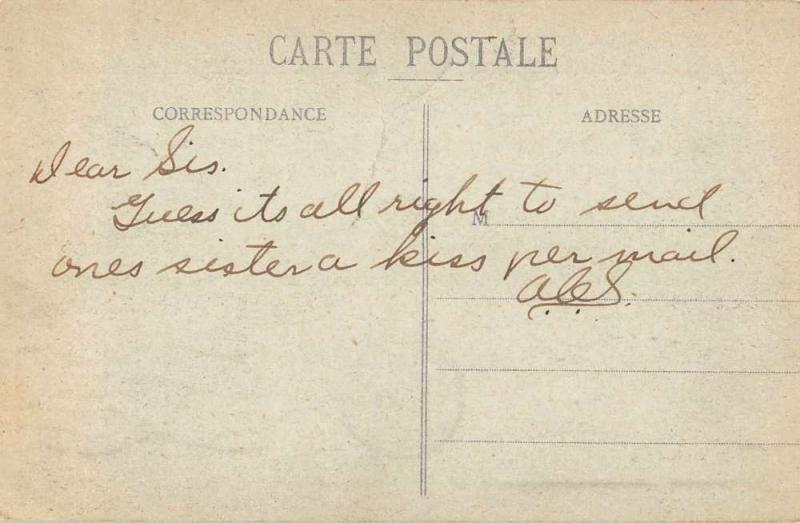 CARTE POSTALE
CORRESPONDANCE
ADRESSE
Dear Sis.
Guess its all right to send
M
ones sister a kiss per mail.